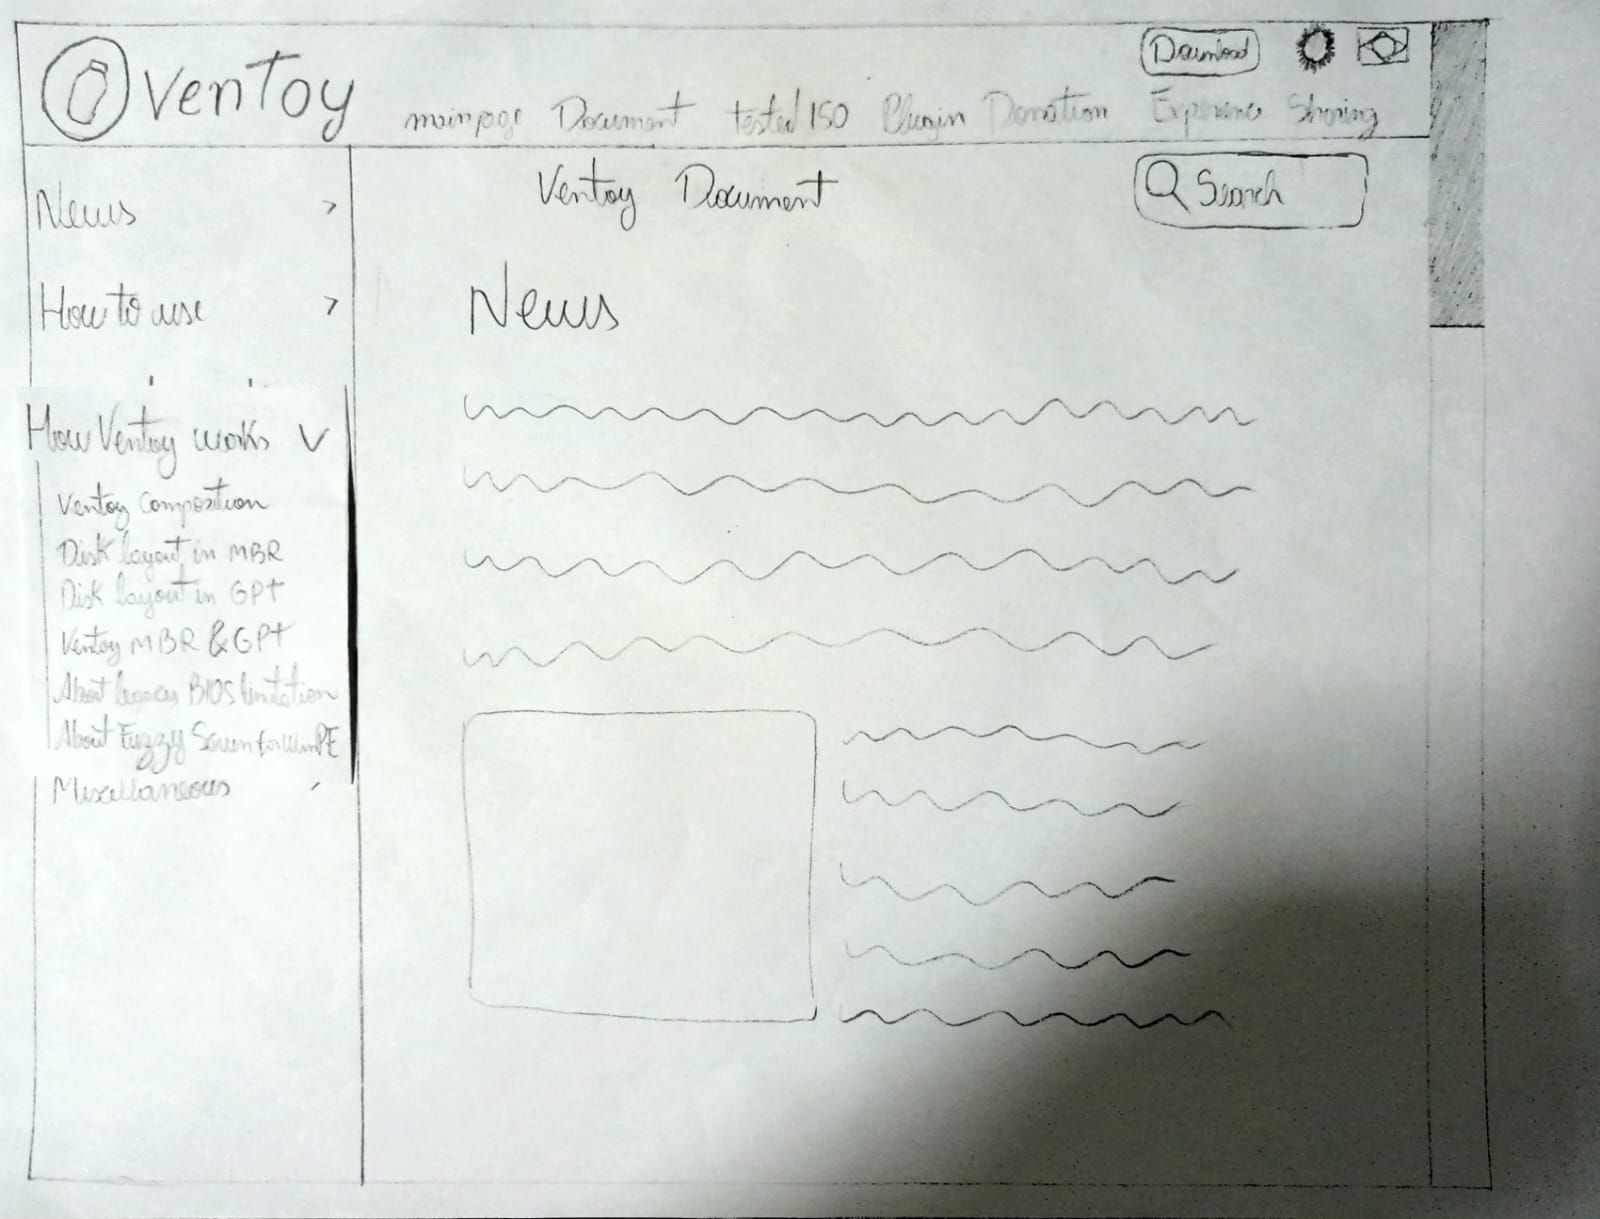 Ventoy
Download
mainpage Document tested ISO Plugin Donation Experience Sharing
Ventoy Document
Search
News >
How to use >
How Ventoy works
Ventoy composition
Disk layout in MBR
Disk layout in GPT
Ventoy MBR & GPT
About legacy BIOS limitation
About Fuzzy Screen for WinPE
Miscellaneous
News